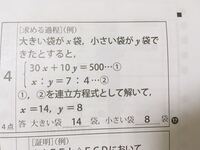 ［求める過程］（例）
大きい袋が x 袋，小さい袋が y 袋で
きたとすると，
30 x ＋10 y ＝500…①
x：y＝7：4…②
①，②を連立方程式として解いて，
x＝14，y＝8
4
4点
答 大きい袋 14 袋，小さい袋 8 袋
［証明］（例）